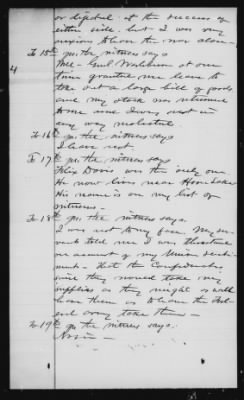 or displeased at the success of
either side but I was very
anxious to have the war close.
To 15th qu. the witness says
4
Yes - Genl Washburn at one
time granted me leave to
take out a large bill of goods
and my stock on
home and I was not in
any way molested
To 16th qu. the witness says
I have not
To 17th qu. the witness says
Felix Davis was the only one
He now lives near Horn Lake
His name is on my list of
witnesses -
To 18th qu. the witness says.
I was not to my face. My ser-
vants told me I was threatened
on account of my Union senti-
ments - that the Confederates
said they would take my
supplies as they might as well
have them as to leave the Fed-
eral army take them -
To 19th qu the witness says:
None -